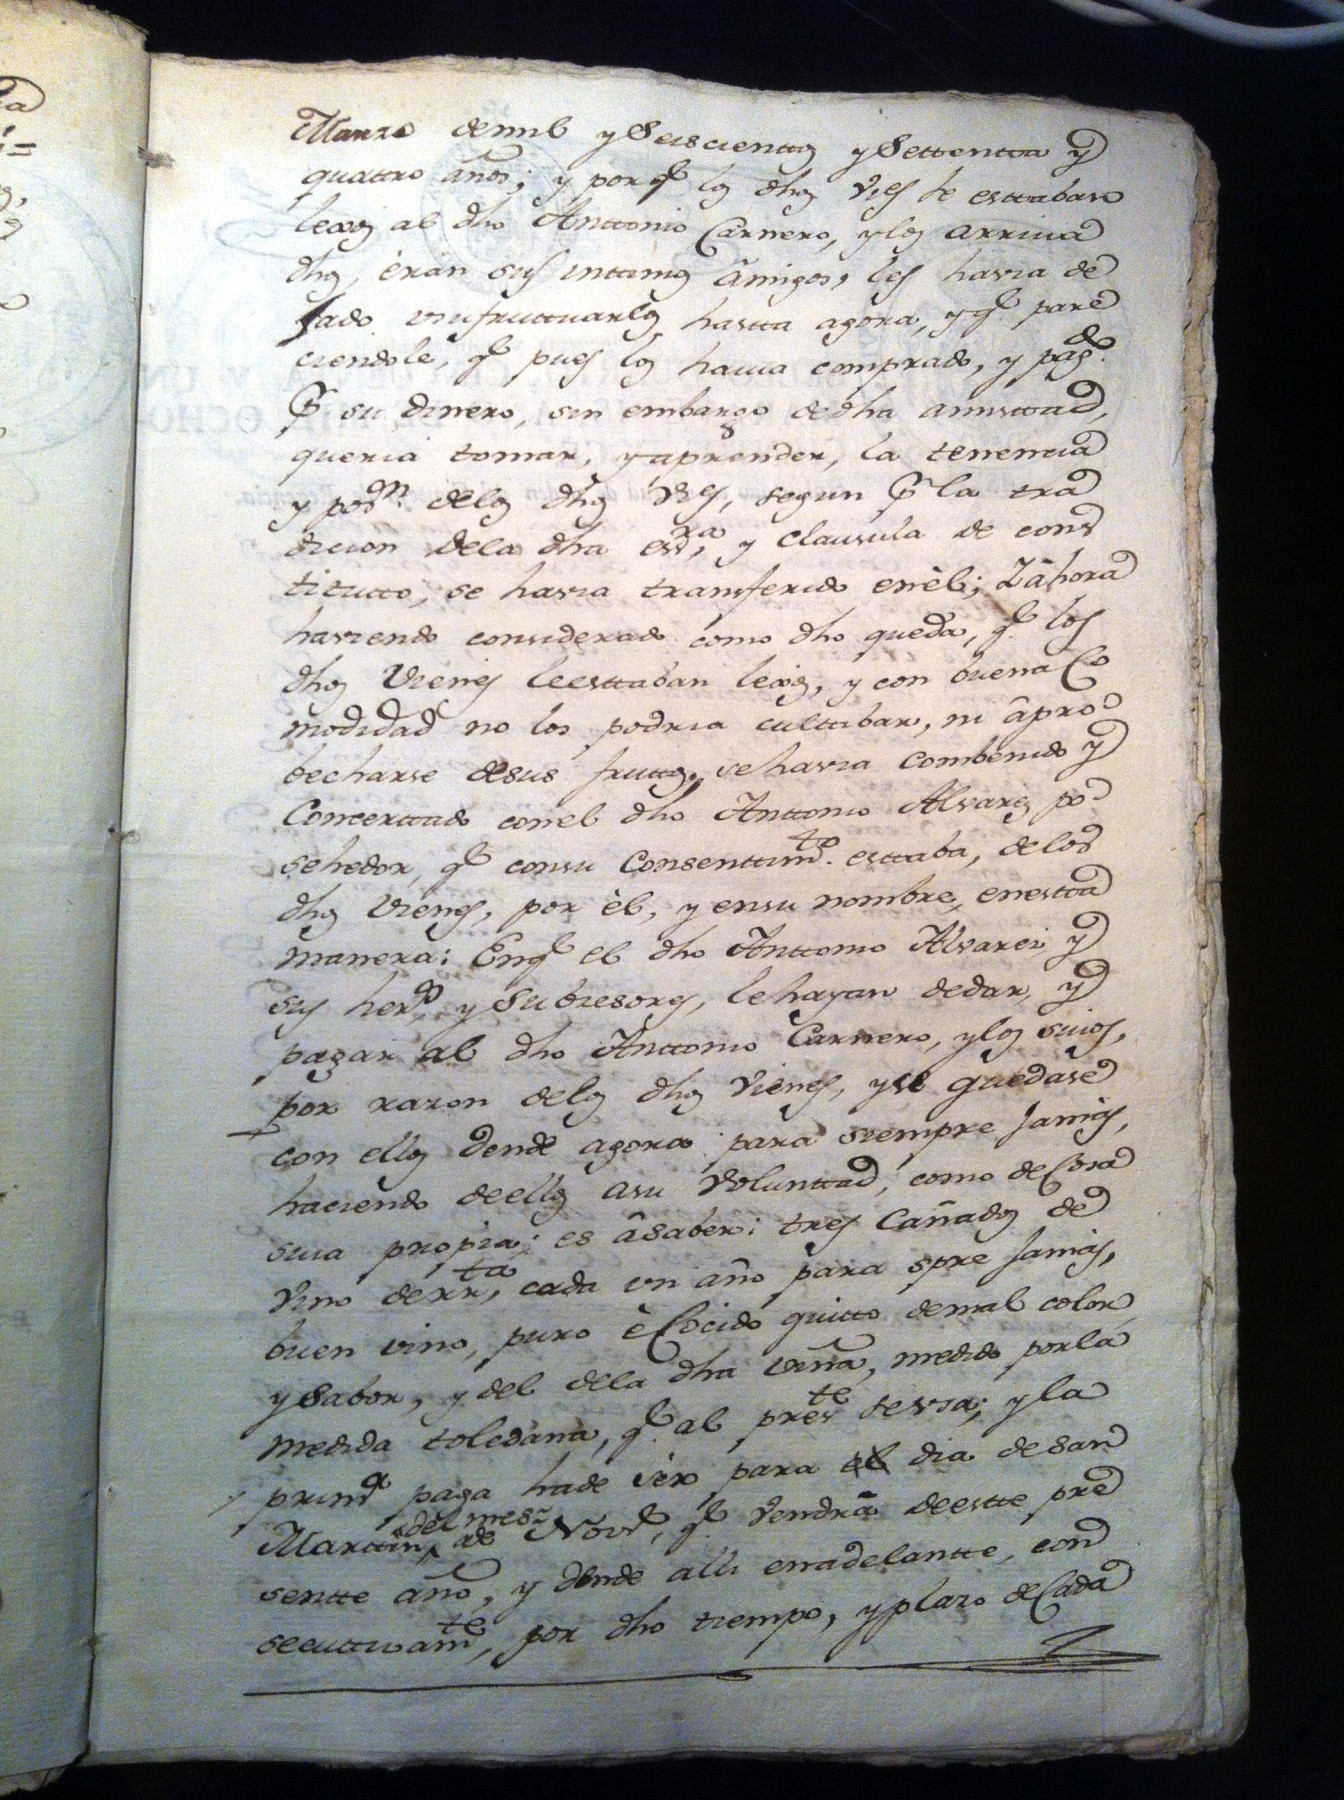 Marzo demil y Seiscienttos y Settentta y
quattro años; y porq.e los dhos Vies le esttaban
lexos al dho Anttonio Carnero, y los arriva
dhos, èran sus intimos âmigos, les havia de
jado usufruttuarlos hastta agora, y q.e pare
ciendole, q.e pues los havia comprado, y pag.do
Pr su dinero, sin embargo de dha amisttad,
queria tomar, y aprender, la tenencia
y poss.n delos dhos Vies, segun Pr la tra
dicion dela dha ess.ra, y clausula de cons
titutto, se havia transferido enèl; Y âhora
haviendo considerado como dho queda, q.e los
dhos Vienes leesttaban lexos, y con buena Co
modidad no los podria culttibar, ni âpro
becharse desus fruttos, se havia combenido y
Concerttado conel dho Anttonio Alvarez po
sehedor, q.e consu Consenttim.to esttaba, delos
dhos Vienes, por èl, y ensu nombre, enestta
manera: Enq.e el dho Anttonio Alvarez y
sus her.os y Subzesores, lehayan dedar, y
pagar al dho Anttonio Carnero, ylos suios,
por razon delos dhos Vienes, yse quedase
con ellos dende agora para siempre Jamas,
haciendo deellos asu Voluntтad, como deCosa
suia propia: es âsaber: tres Cañados de
Vino derr.ta, cada un año para spre Jamas,
buen vino, puro è Cocido quitto demal color,
y Sabor, y del dela dha viña, medido porla
medida toledana, q.e al pres.te se usa; y la
prim.a paga hade ser para el dia desan
Marttin, del mes de Nov.e, q.e Vendrà deestte pre
sentte año, y dende alli enadelantte, con
secuttivam.te, por dho tiempo, y plazo deCada